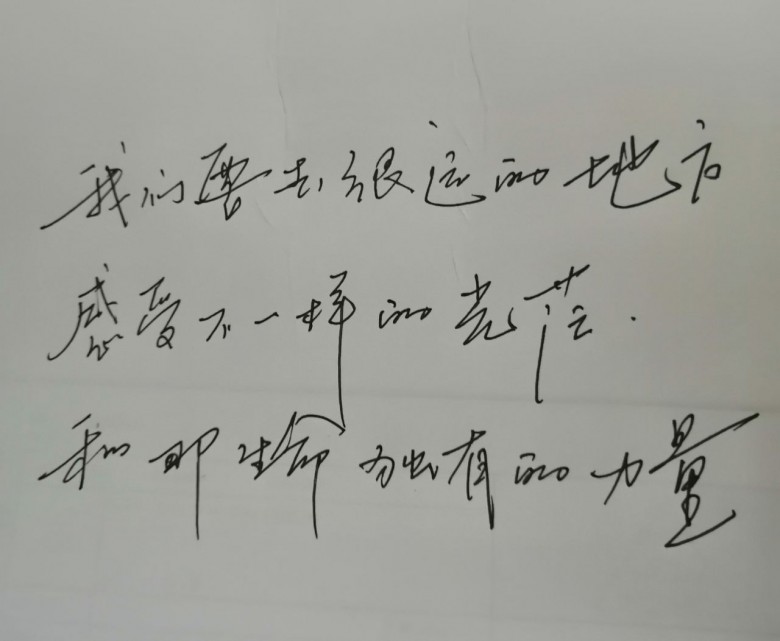 我们要去很远的地方
感受不一样的光芒.
和那生命独有的力量